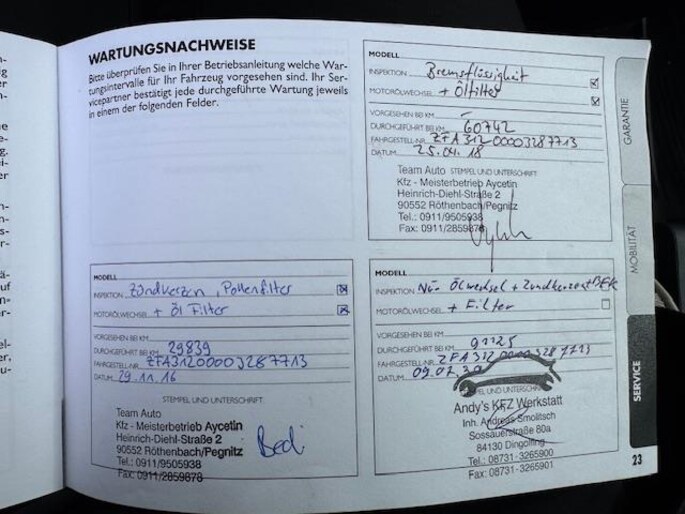 WARTUNGSNACHWEISE
Bitte überprüfen Sie in Ihrer Betriebsanleitung welche War-
tungsintervalle für Ihr Fahrzeug vorgesehen sind. Ihr Ser-
vicepartner bestätigt jede durchgeführte Wartung jeweils
in einem der folgenden Felder.
MODELL
INSPEKTION Bremsflüssigkeit
MOTORÖLWECHSEL + Ölfilter
VORGESEHEN BEI KM –
DURCHGEFÜHRT BEI KM 60742
FAHRGESTELL-NR. ZFA31200003287713
DATUM 25.04.18
STEMPEL UND UNTERSCHRIFT
Team Auto
Kfz - Meisterbetrieb Aycetin
Heinrich-Diehl-Straße 2
90552 Röthenbach/Pegnitz
Tel.: 0911/9505938
Fax: 0911/2859878
MODELL
INSPEKTION Zündkerzen, Pollenfilter
MOTORÖLWECHSEL + Öl Filter
VORGESEHEN BEI KM
DURCHGEFÜHRT BEI KM 29839
FAHRGESTELL-NR. ZFA31200003287713
DATUM 29.11.16
STEMPEL UND UNTERSCHRIFT
Team Auto
Kfz - Meisterbetrieb Aycetin
Heinrich-Diehl-Straße 2
90552 Röthenbach/Pegnitz
Tel.: 0911/9505938
Fax: 0911/2859878
MODELL
INSPEKTION Nur Ölwechsel + Zündkerzen
MOTORÖLWECHSEL + Filter
VORGESEHEN BEI KM
DURCHGEFÜHRT BEI KM 91125
FAHRGESTELL-NR. ZFA31200003287713
DATUM 09.07.
Andy's KFZ Werkstatt
Inh. Andreas Smolitsch
Sossauerstraße 80a
84130 Dingolfing
Tel.: 08731-3265900
Fax: 08731-3265901
GARANTIE
MOBILITÄT
SERVICE
23